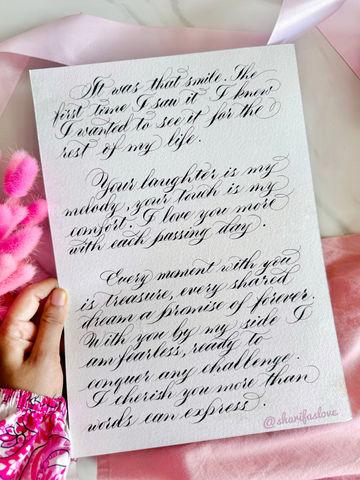 It was that smile. The
first time I saw it I knew
I wanted to see it for the
rest of my life.
Your laughter is my
melody, your touch is my
comfort. I love you more
with each passing day.
Every moment with you
is treasure, every shared
dream a promise of forever.
With you by my side I
am fearless, ready to
conquer any challenge.
I cherish you more than
words can express.
@sharifaslove